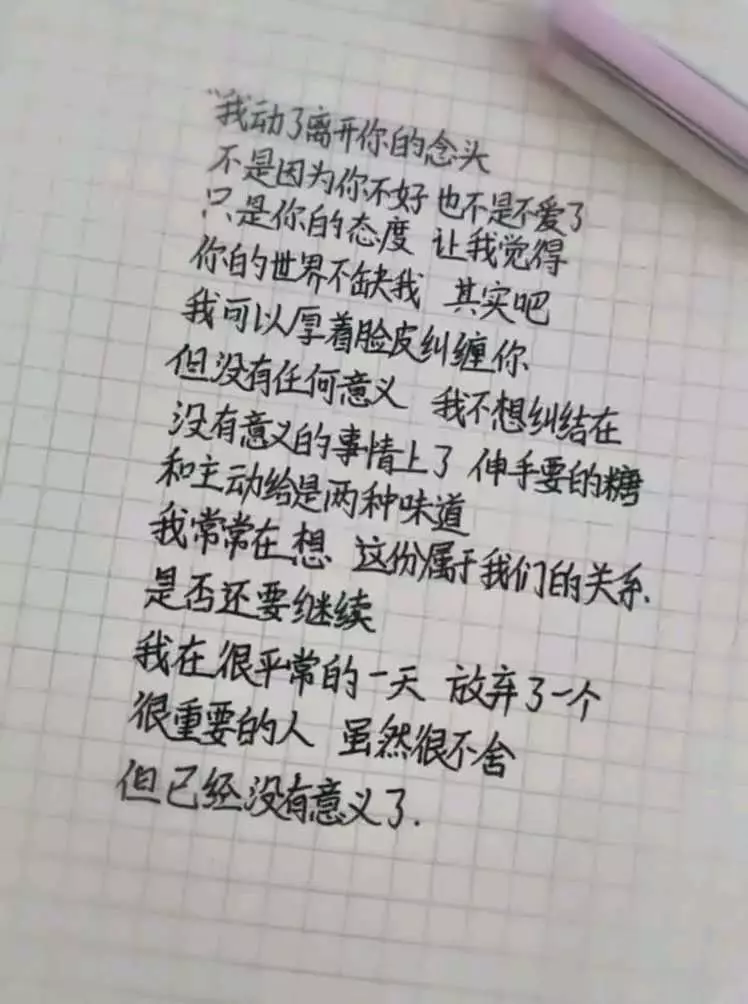 "我动了离开你的念头
不是因为你不好 也不是不爱了
只是你的态度 让我觉得
你的世界不缺我 其实吧
我可以厚着脸皮纠缠你
但没有任何意义 我不想纠结在
没有意义的事情上了 伸手要的糖
和主动给是两种味道
我常常在想 这份属于我们的关系、
是否还要继续
我在很平常的一天 放弃了一个
很重要的人 虽然很不舍
但已经没有意义了.